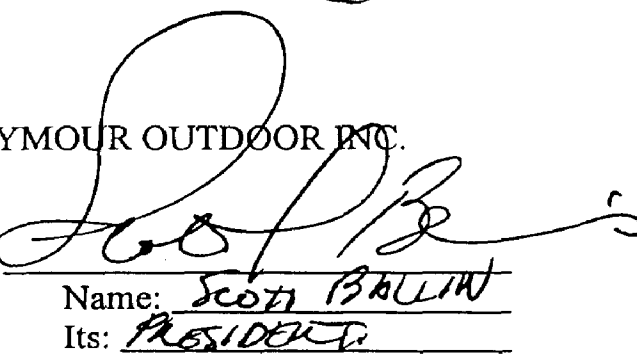 YMOUR OUTDOOR INC.
Name: Scott BALLIN
Its: PRESIDENT